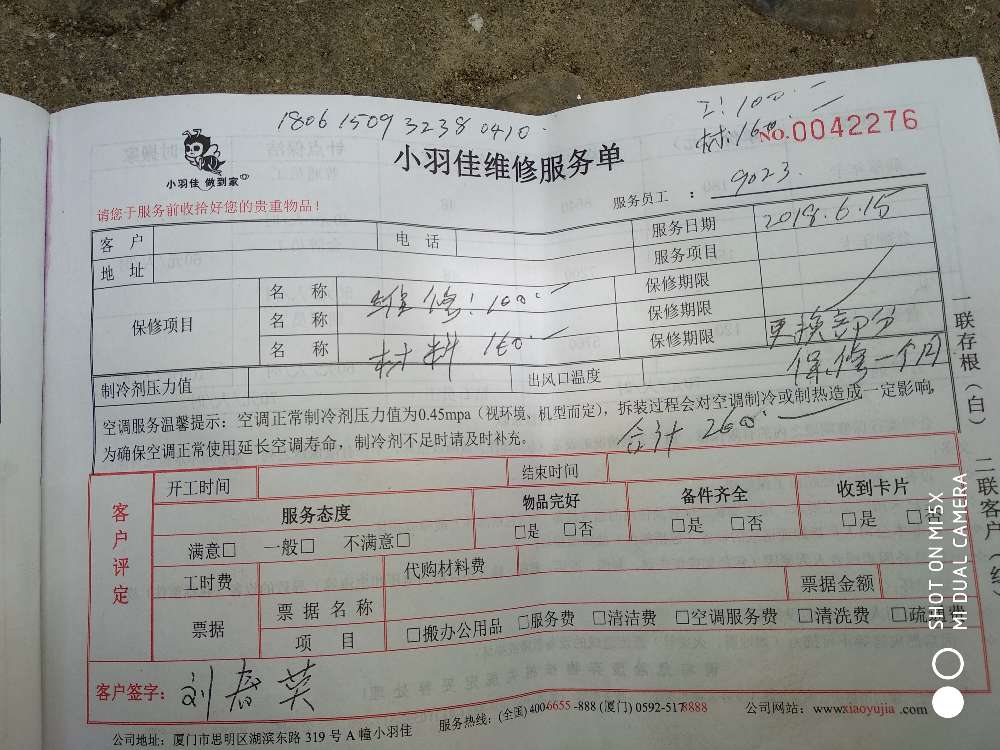 1806150932380410
工:100.一
材:160.一
NO.0042276
小羽佳 做到家
小羽佳维修服务单
服务员工 : 9023.
请您于服务前收拾好您的贵重物品!
客 户 电 话 服务日期 2018.6.15
地 址 服务项目
保修项目 名 称 维修:100.一 保修期限
名 称 保修期限
名 称 材料 160一 保修期限 更换部分
保修一个月
制冷剂压力值 出风口温度
空调服务温馨提示:空调正常制冷剂压力值为0.45mpa(视环境、机型而定),拆装过程会对空调制冷或制热造成一定影响,
为确保空调正常使用延长空调寿命,制冷剂不足时请及时补充。
合计 260.
一联存根(白) 二联客户(红)
客户评定
开工时间 结束时间
服务态度 物品完好 备件齐全 收到卡片
满意□ 一般□ 不满意□ □是 □否 □是 □否 □是 □否
工时费 代购材料费
票据 票据名称 票据金额
项 目 □搬办公用品 □服务费 □清洁费 □空调服务费 □清洗费 □疏通费
客户签字: 刘春英
公司地址:厦门市思明区湖滨东路 319 号 A 幢小羽佳 服务热线:(全国) 4006655-888 (厦门) 0592-5178888 公司网站:www.xiaoyujia .com
SHOT ON MI 5X
MI DUAL CAMERA